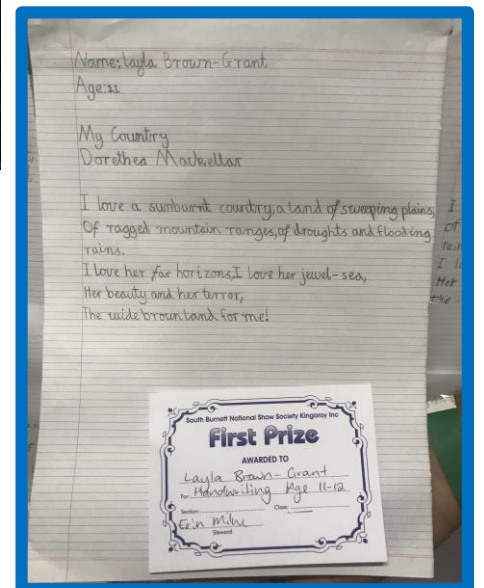 Name: Layla Brown-Grant
Age: 11
My Country
Dorethea Mackellar
I love a sunburnt country, a land of sweeping plains,
Of ragged mountain ranges, of droughts and flooding
rains.
I love her far horizons, I love her jewel-sea,
Her beauty and her terror,
The wide brown land for me!
South Burnett National Show Society Kingaroy Inc
First Prize
AWARDED TO
Layla Brown-Grant
For Handwriting Age 11-12
Section Class
Erin Milne
Steward